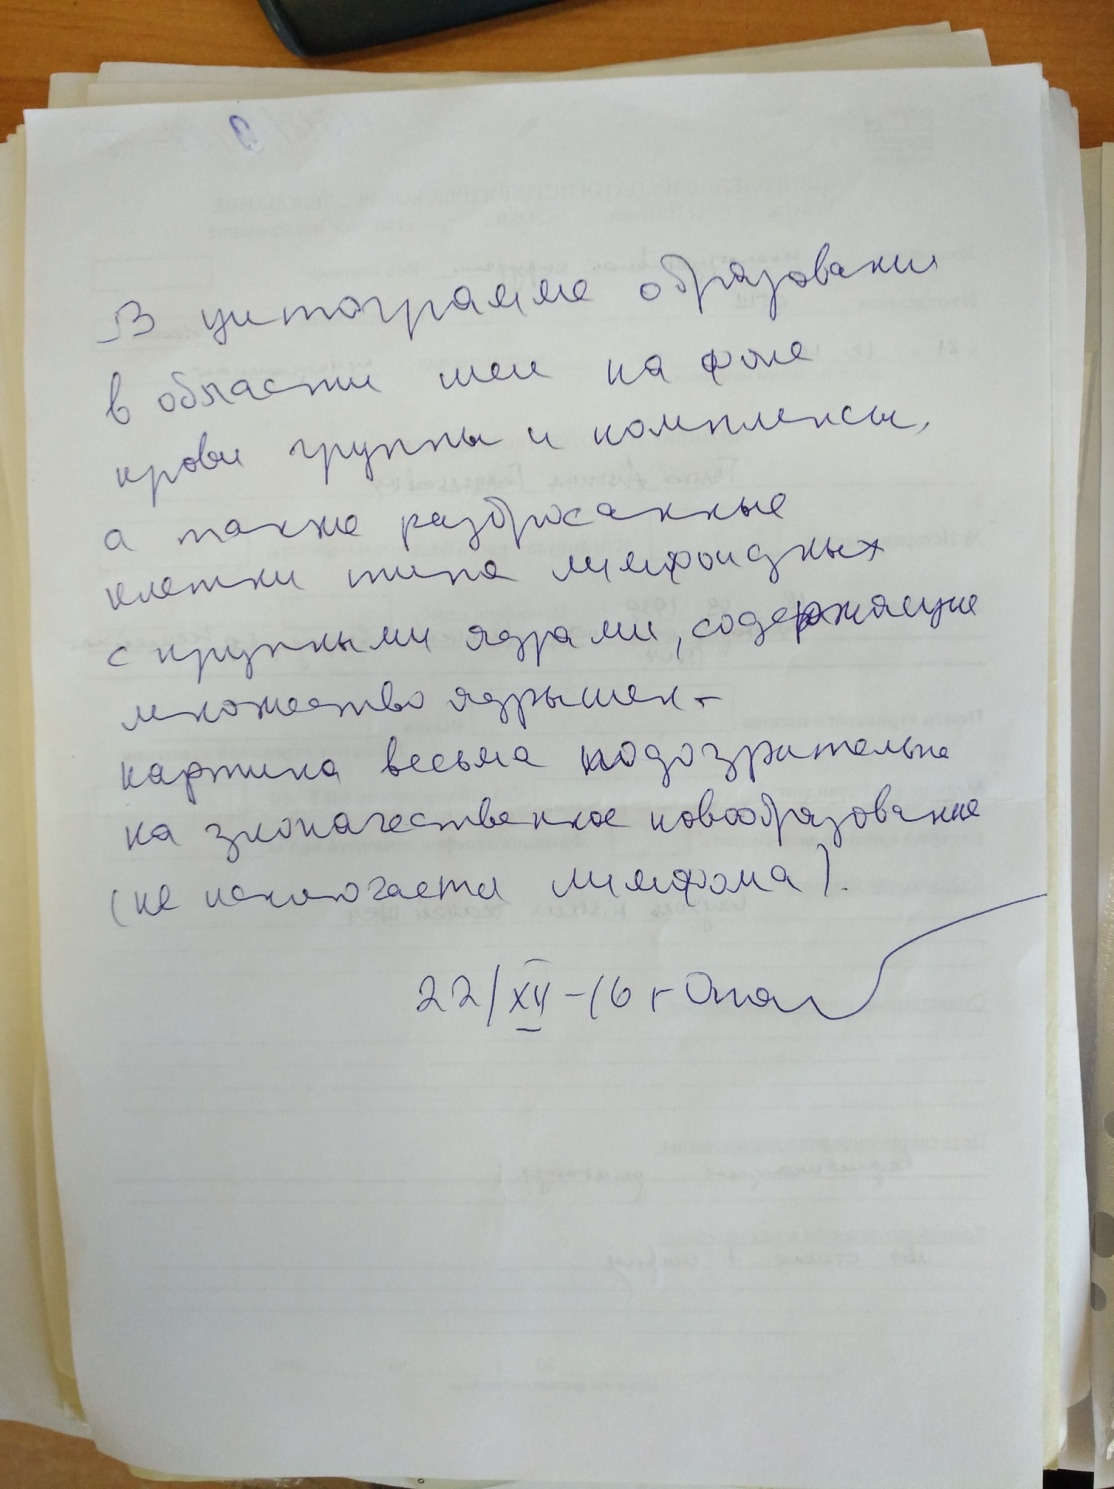 В цитограмме образования
в области шеи на фоне
крови группы и комплексы,
а также разбросанные
клетки типа лимфоидных
с крупными ядрами, содержащие
множество ядрышек -
картина весьма подозрительна
на злокачественное новообразование
(не исключается лимфома).
22/XII-16 г